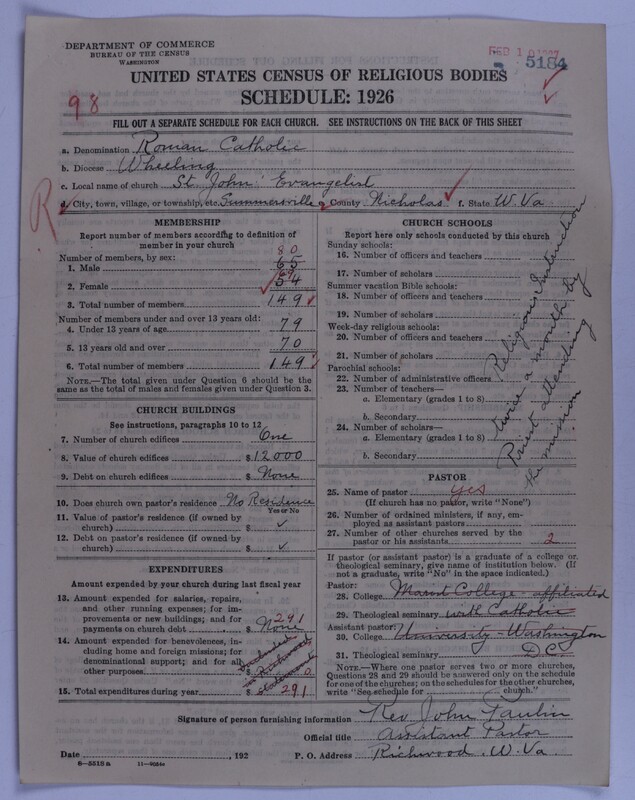 DEPARTMENT OF COMMERCE
BUREAU OF THE CENSUS
WASHINGTON
FEB 1
5184
UNITED STATES CENSUS OF RELIGIOUS BODIES
SCHEDULE: 1926
98
FILL OUT A SEPARATE SCHEDULE FOR EACH CHURCH. SEE INSTRUCTIONS ON THE BACK OF THIS SHEET
a. Denomination Roman Catholic
b. Diocese Wheeling
c. Local name of church St. John Evangelist
R
d. City, town, village, or township, etc. Summersville e. County Nicholas f. State W. Va.
MEMBERSHIP
Report number of members according to definition of member in your church
Number of members, by sex:
80
1. Male 65
69
2. Female 54
3. Total number of members 149
Number of members under and over 13 years old:
4. Under 13 years of age 79
5. 13 years old and over 70
6. Total number of members 149
NOTE.—The total given under Question 6 should be the same as the total of males and females given under Question 3.
CHURCH BUILDINGS
See instructions, paragraphs 10 to 12
7. Number of church edifices One
8. Value of church edifices $ 12000
9. Debt on church edifices $ None
10. Does church own pastor's residence No Residence
Yes or No
11. Value of pastor's residence (if owned by
church) $ ✓
12. Debt on pastor's residence (if owned by
church) $ ✓
EXPENDITURES
Amount expended by your church during last fiscal year
13. Amount expended for salaries, repairs,
and other running expenses; for im-
provements or new buildings; and for 291
payments on church debt $ None
14. Amount expended for benevolences, in-
cluding home and foreign missions; for
denominational support; and for all
other purposes $ 0
in Richwood
statement
15. Total expenditures during year $ 291
CHURCH SCHOOLS
Report here only schools conducted by this church
Sunday schools:
16. Number of officers and teachers
17. Number of scholars
Summer vacation Bible schools:
18. Number of officers and teachers
19. Number of scholars
Week-day religious schools:
20. Number of officers and teachers
21. Number of scholars
Parochial schools:
22. Number of administrative officers
23. Number of teachers—
a. Elementary (grades 1 to 8)
b. Secondary
24. Number of scholars—
a. Elementary (grades 1 to 8)
b. Secondary
Religious Instruction
twice a month by
Priest attending
the mission
PASTOR
25. Name of pastor yes
(If church has no pastor, write "None")
26. Number of ordained ministers, if any, em-
ployed as assistant pastors
27. Number of other churches served by the
pastor or his assistants 2
If pastor (or assistant pastor) is a graduate of a college or theological seminary, give name of institution below. (If not a graduate, write "No" in the space indicated.)
Pastor:
28. College Marist College - affiliated
29. Theological seminary with Catholic
Assistant pastor:
30. College University - Washington
31. Theological seminary D.C.
NOTE.—Where one pastor serves two or more churches, Questions 28 and 29 should be answered only on the schedule for one of the churches; on the schedules for the other churches, write "See schedule for church."
Signature of person furnishing information Rev John Paulin
Official title Assistant Pastor
Date , 192 P. O. Address Richwood, W. Va.
8—5518a 11—9054a